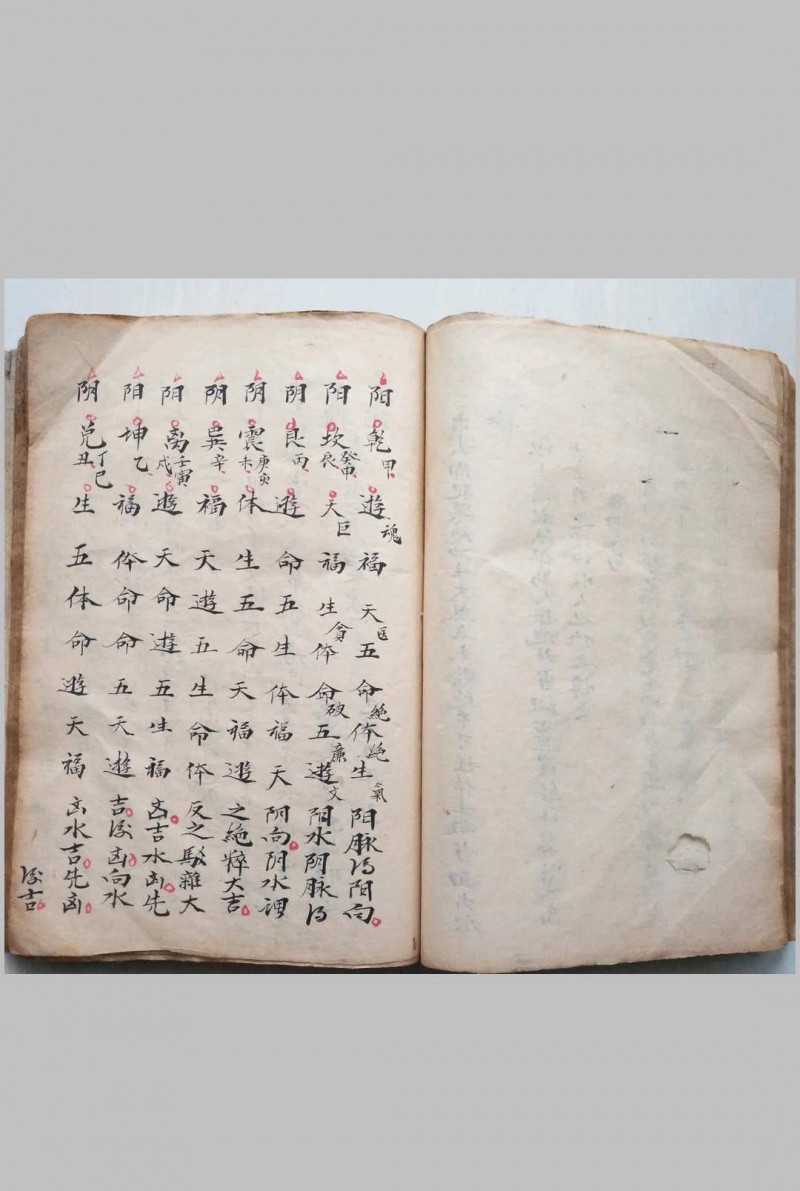 阳乾甲遊魂福天巨五命絶体絶生氣阳脉得阳向
阳坎癸申辰天巨福生貪体命破五廉遊文阳水阴脉得
阴艮丙遊命五生体福天阴向阴水謂
阴震庚亥未体生五命天福遊之絶粹大吉
阴巽辛福天遊五生命体反之駁雜大
阳离壬寅戌遊天命遊五生福凶吉水凶先
阳坤乙福体命命五天遊吉後凶向水
阴兑丁巳丑生五体命遊天福凶水吉先凶
後吉